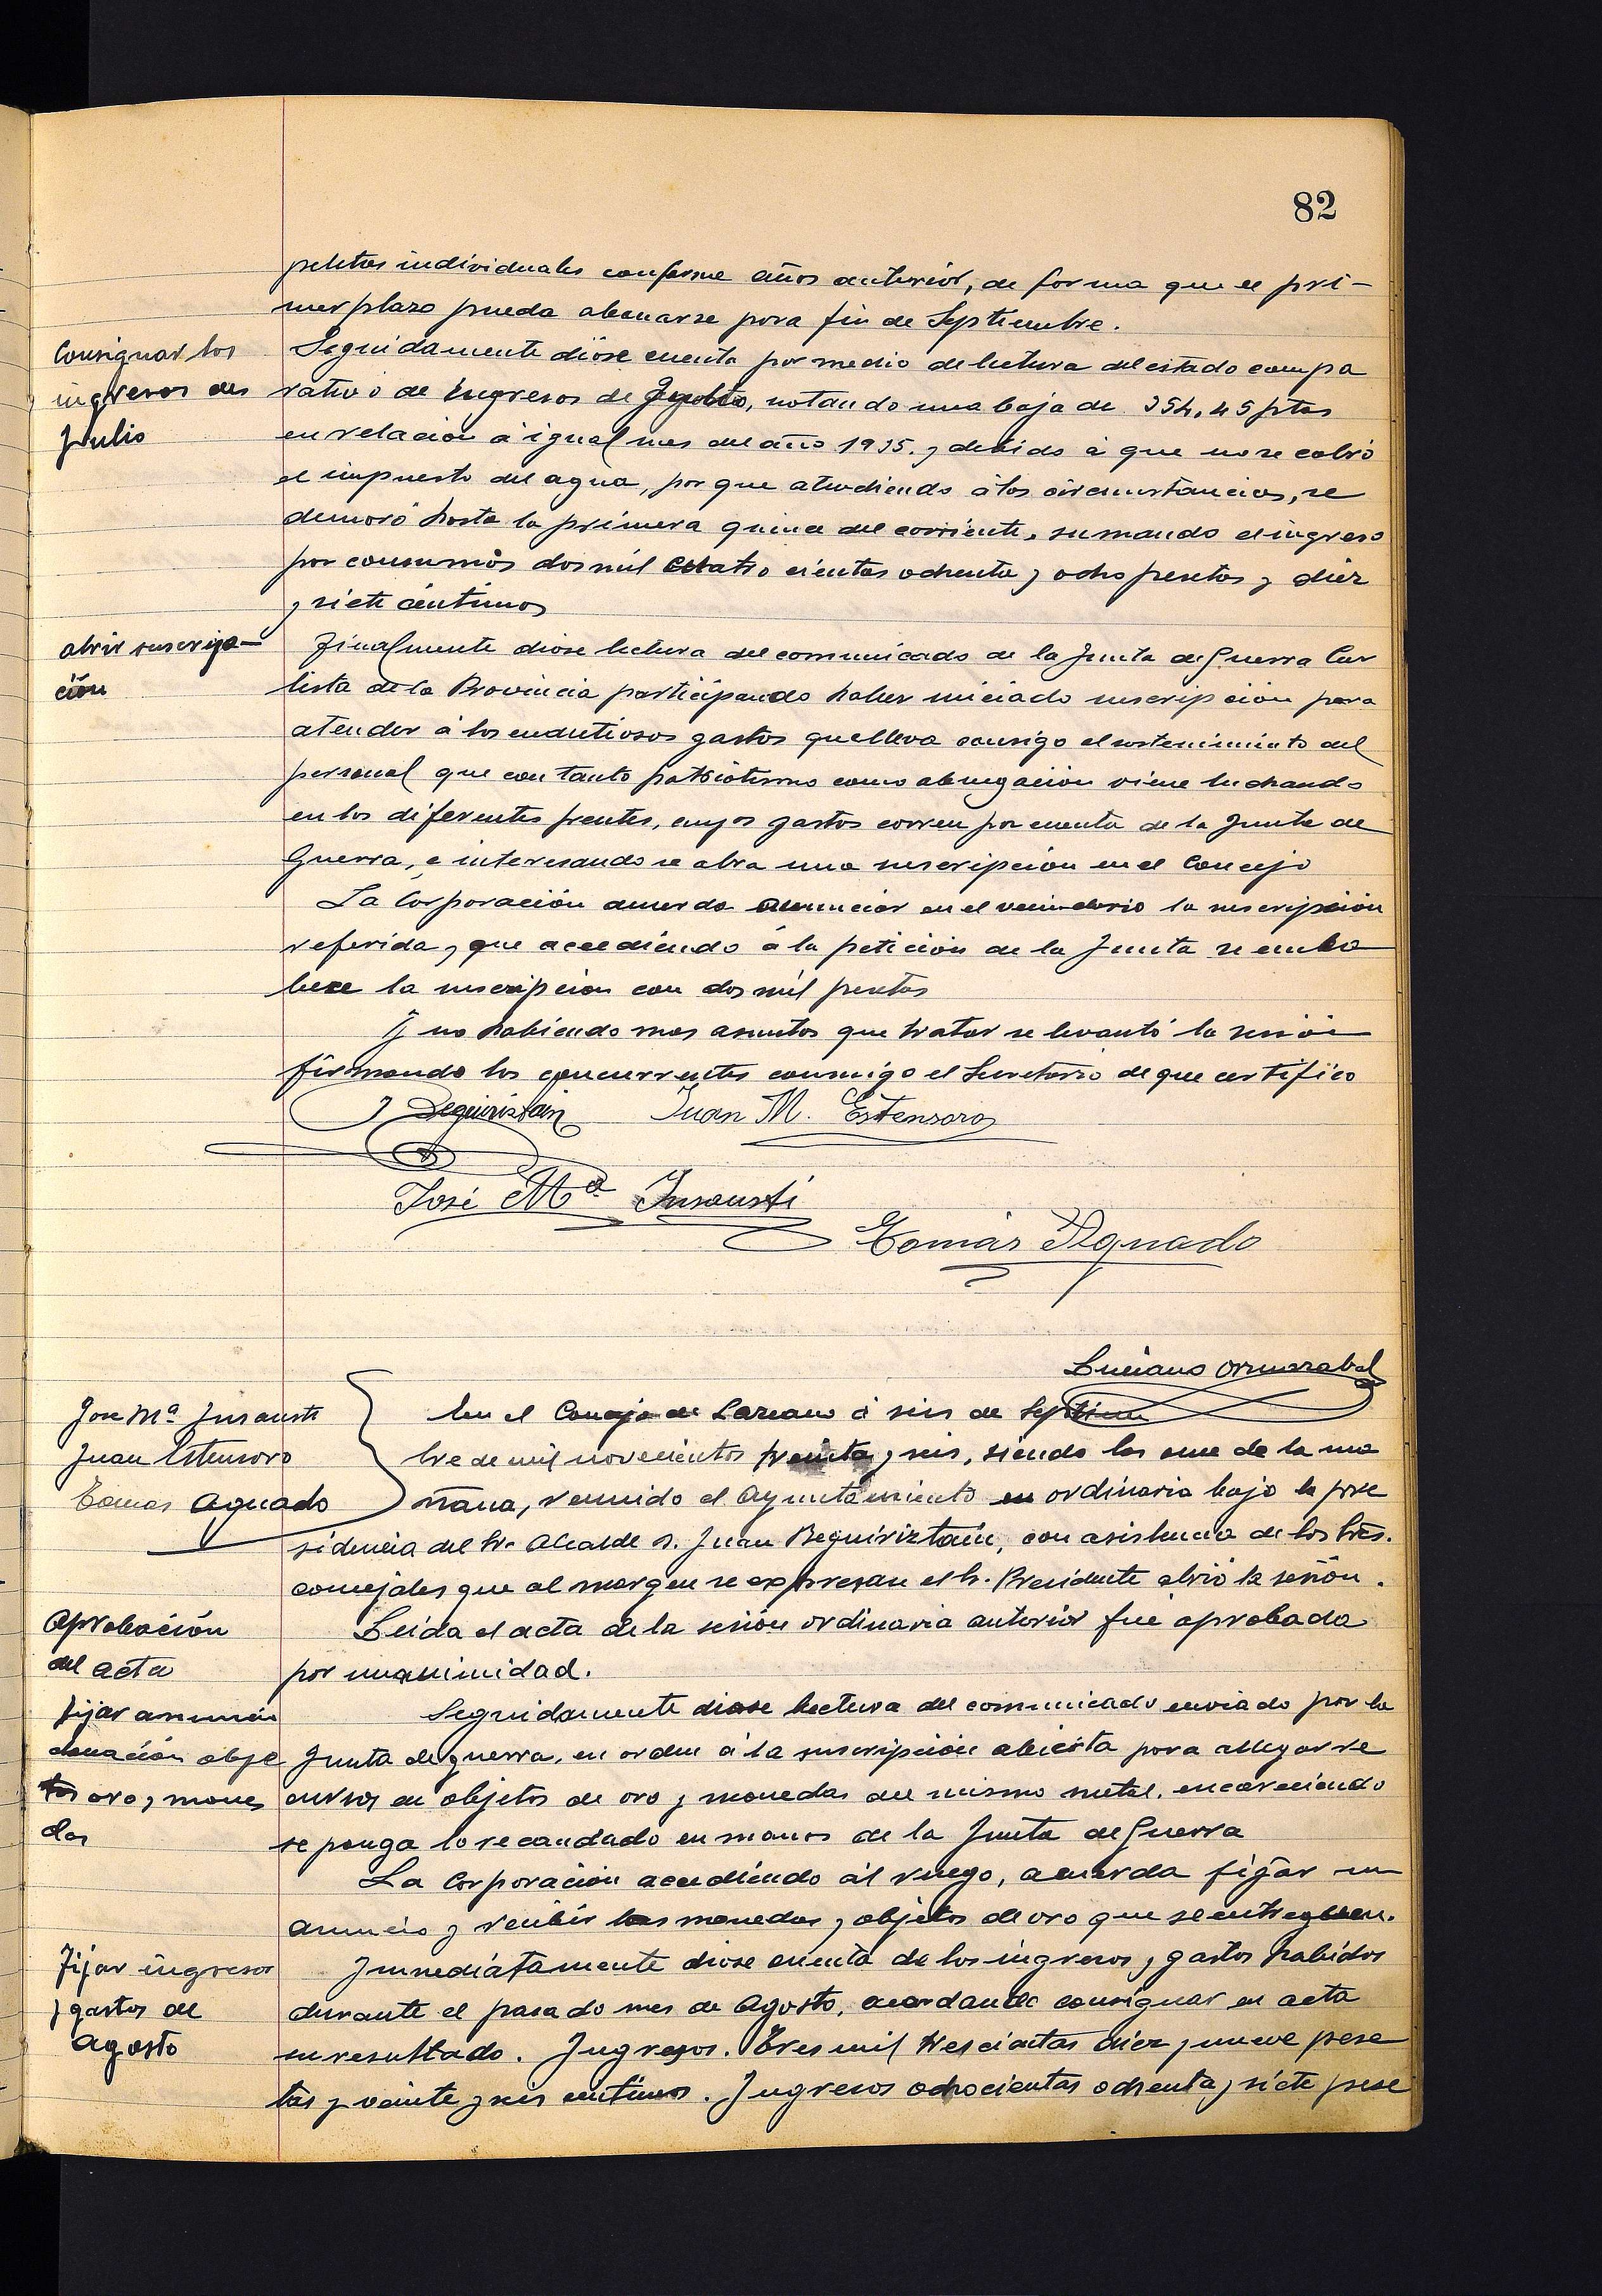 82
peletas individuales conforme años anterior, de forma que el pri-
mer plazo pueda abonarse para fin de Septiembre.
Consignar los
ingresos de
Julio
Seguidamente diose cuenta por medio de lectura del estado compa
rativo de Ingresos de Agosto, notando una baja de 354,45 ptas
en relación á igual mes del año 1935. y debido á que no se cobró
el impuesto del agua, porque atendiendo á las circunstancias, se
demoró hasta la primera quince del corriente, sumando el ingreso
por consumos dos mil cuatro cientas ochenta y ocho pesetas y diez
y siete céntimos
abrir suscrip-
ción
Finalmente diose lectura del comunicado de la Junta de Guerra Car
lista de la Provincia participando haber iniciado suscripción para
atender á los cuantiosos gastos que lleva consigo el sostenimiento del
personal que con tanto patriotismo como abnegación viene luchando
en los diferentes frentes, cuyos gastos corren por cuenta de la Junta de
Guerra, e interesando se abra una suscripción en el Concejo
La Corporación acuerda anunciar en el vecindario la suscripción
referida y que accediendo á la petición de la Junta se enca
bece la suscripción con dos mil pesetas
Y no habiendo mas asuntos que tratar se levantó la sesión
firmando los concurrentes conmigo el Secretario de que certifico
J Beguiristain Juan M. Estensoro
José Mª Insausti
Tomás Aguado
Luciano Ormazabal
Jose Mª Insausti
Juan Estensoro
Tomas Aguado
En el Concejo de Lazcano á seis de Septiem
bre de mil novecientos treinta y seis, siendo las once de la ma
ñana, reunido el Ayuntamiento en ordinaria bajo la pre
sidencia del Sr. Alcalde D. Juan Beguiriztain, con asistencia de los Sres.
concejales que al margen se expresan el Sr. Presidente abrió la sesión.
Aprobación
del acta
Leida el acta de la sesión ordinaria anterior fué aprobada
por unanimidad.
fijar anuncio
donación obje
tos oro y mone
das
Seguidamente diose lectura del comunicado enviado por la
Junta de guerra, en orden á la suscripción abierta para allegar re
cursos en objetos de oro y monedas del mismo metal, encareciendo
se ponga lo recaudado en manos de la Junta de Guerra
La Corporación accediendo ál ruego, acuerda fijar un
anuncio y recibir las monedas y objetos de oro que se entreguen.
Fijar ingresos
y gastos de
Agosto
Inmediatamente diose cuenta de los ingresos y gastos habidos
durante el pasado mes de Agosto, acordando consignar en acta
su resultado. Ingresos. Tres mil trescientas diez y nueve pese
tas y veinte y seis centimos. Ingresos ochocientas ochenta y siete pese